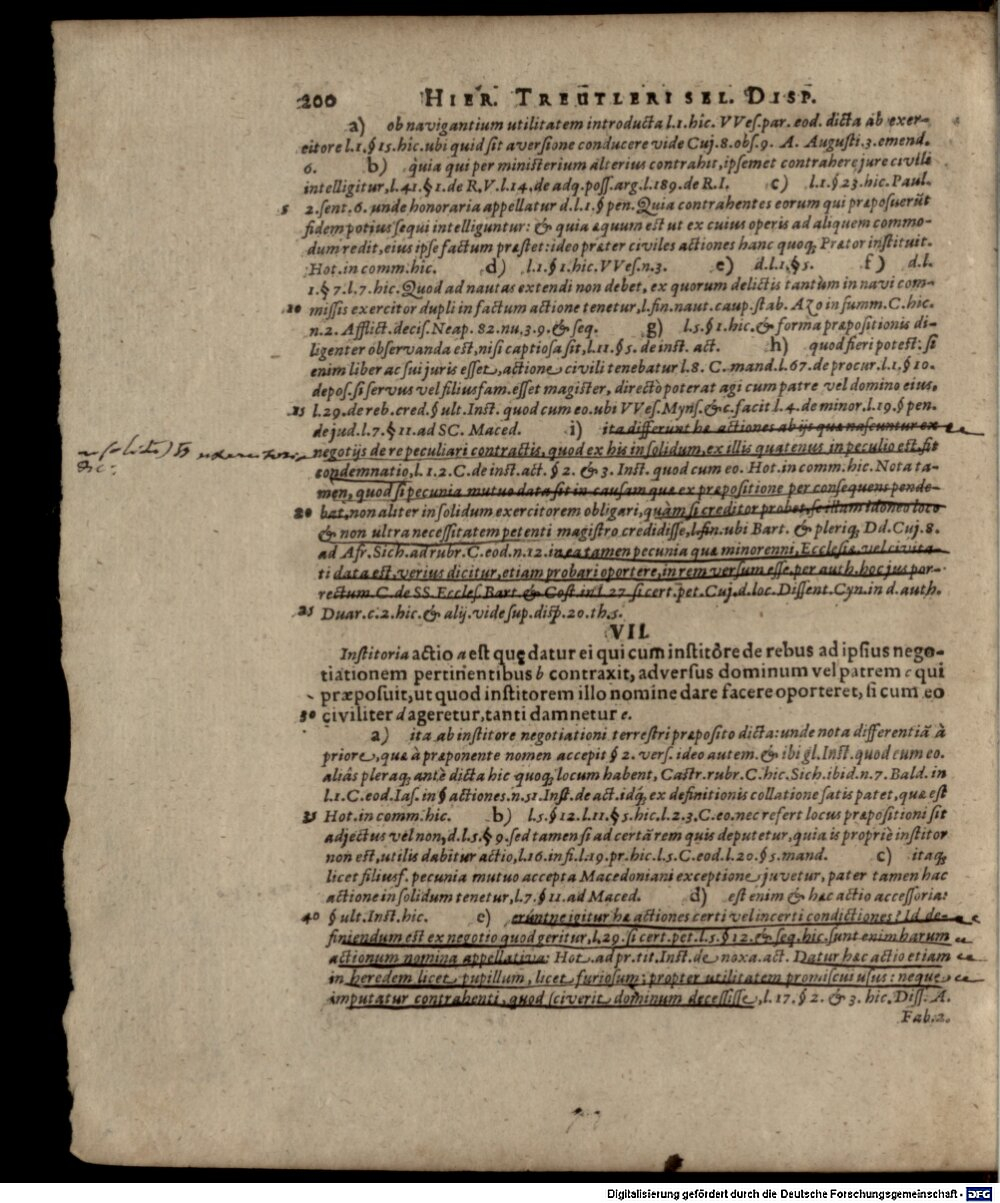 200 HIER. TREUTLERI SEL. DISP.
a) ob navigantium utilitatem introducta l.1.hîc. VVeſ.par. eod. dicta ab exer-
citore l.1.§ 15.hic.ubi quid ſit averſione conducere vide Cuj.8.obſ.9. A. Auguſti.3.emend.
6. b) quia qui per miniſterium alterius contrahit,ipſemet contrahere jure civili
intelligitur,l.41.§ 1.de R.V.l.14.de adq.poſſ.arg.l.189.de R.I. c) l.1.§ 23.hic.Paul.
5 2.ſent.6.unde honoraria appellatur d.l.1.§ pen.Quia contrahentes eorum qui præpoſuerūt
fidem potius ſequi intelliguntur: & quia æquum eſt ut ex cuius operis ad aliquem commo-
dum redit,eius ipſe factum præſtet:ideo præter civiles actiones hanc quoq; Prætor inſtituit.
Hot.in comm.hic. d) l.1.§ 1.hic.VVeſ.n.3. e) d.l.1,§ 5. f) d.l.
1.§ 7.l.7.hic.Quod ad nautas extendi non debet,ex quorum delictis tantùm in navi com-
10 miſſis exercitor dupli in factum actione tenetur,l.fin.naut.caup.ſtab. Azo in ſumm.C.hic.
n.2. Afflict.deciſ.Neap. 82.nu,3.9.& ſeq. g) l.5.§ 1.hic.& forma præpoſitionis di-
ligenter obſervanda eſt,niſi captioſa ſit,l.11.§ 5. de inſt. act. h) quod fieri poteſt: ſi
enim liber ac ſui juris eſſet,actione civili tenebatur l.8. C.mand.l.67.de procur.l.1,§ 10.
depoſ.ſi ſervus vel filiusfam.eſſet magiſter, directò poterat agi cum patre vel domino eius,
15 l.29.de reb.cred.§ ult.Inſt. quod cum eo.ubi VVeſ.Mynſ.&c.facit l.4.de minor.l.19.§ pen.
de jud.l.7.§ 11.ad SC. Maced. i) ita differunt hæ actiones ab ijs quæ naſcuntur ex
negotijs de re peculiari contractis,quod ex his in ſolidum,ex illis quatenus in peculio eſt,fit
condemnatio,l.1.2.C.de inſt.act.§ 2.& 3.Inſt.quod cum eo. Hot.in comm.hic.Nota ta-
men,quod ſi pecunia mutuo data ſit in cauſam quæ ex præpoſitione per conſequens pende-
20 bat,non aliter in ſolidum exercitorem obligari,quàm ſi creditor probet,ſe illum idoneo loco
& non ultra neceſſitatem petenti magiſtro credidiſſe,l.fin.ubi Bart. & pleriq; Dd.Cuj.8.
ad Afr.Sich.ad rubr.C.eod.n.12.in ea tamen pecunia quæ minorenni,Eccleſiæ,vel civita-
ti data eſt,verius dicitur,etiam probari oportere,in rem verſum eſſe,per auth.hoc jus por-
rectum.C.de SS.Eccleſ.Bart.& Coſt.in l.27.ſi cert.pet.Cuj.d.loc.Diſſent.Cyn.in d.auth.
25 Duar.c.2.hic.& alij.vide ſup.diſp.20.th.5.
VII.
Inſtitoria actio a eſt quę datur ei qui cum inſtitòre de rebus ad ipſius nego-
tiationem pertinentibus b contraxit, adverſus dominum vel patrem c qui
præpoſuit,ut quod inſtitorem illo nomine dare facere oporteret, ſi cum eo
30 civiliter d ageretur,tanti damnetur e.
a) ita ab inſtitore negotiationi terreſtri præpoſito dicta:unde nota differentiã à
priore,quæ à præponente nomen accepit § 2. verſ.ideo autem.& ibi gl.Inſt.quod cum eo.
aliâs pleraq; antè dicta hic quoq; locum habent, Caſtr.rubr.C.hic.Sich.ibid.n.7. Bald. in
l.1.C.eod.Iaſ.in § actiones.n.51.Inſt.de act.idq́; ex definitionis collatione ſatis patet,quæ eſt
35 Hot.in comm.hic. b) l.5.§ 12.l.11.§ 5.hic.l.2.3.C.eo.nec refert locus præpoſitioni ſit
adjectus vel non,d.l.5.§ 9.ſed tamen ſi ad certã rem quis deputetur,quia is propriè inſtitor
non eſt,utilis dabitur actio,l.16.in fi.l.19.pr.hic.l.5.C.eod.l.20.§ 5.mand. c) itaq;
licet filiusf. pecunia mutuo accepta Macedoniani exceptione juvetur, pater tamen hac
actione in ſolidum tenetur,l.7.§ 11.ad Maced. d) eſt enim & hæc actio acceſſoria:
40 § ult.Inſt.hic. e) eruntne igitur hæ actiones certi vel incerti condictiones? Id de-
finiendum eſt ex negotio quod geritur,l.29.ſi cert.pet.l.5.§ 12.& ſeq.hic.ſunt enim harum
actionum nomina appellativa: Hot.ad pr.tit.Inſt.de noxa.act. Datur hæc actio etiam
in heredem licet pupillum, licet furioſum: propter utilitatem promiſcui uſus: neque
imputatur contrahenti,quod ſciverit dominum deceſſiſſe,l.17.§ 2. & 3. hic.Diſſ. A.
Fab.2.
Digitalisierung gefördert durch die Deutsche Forschungsgemeinschaft - DFG